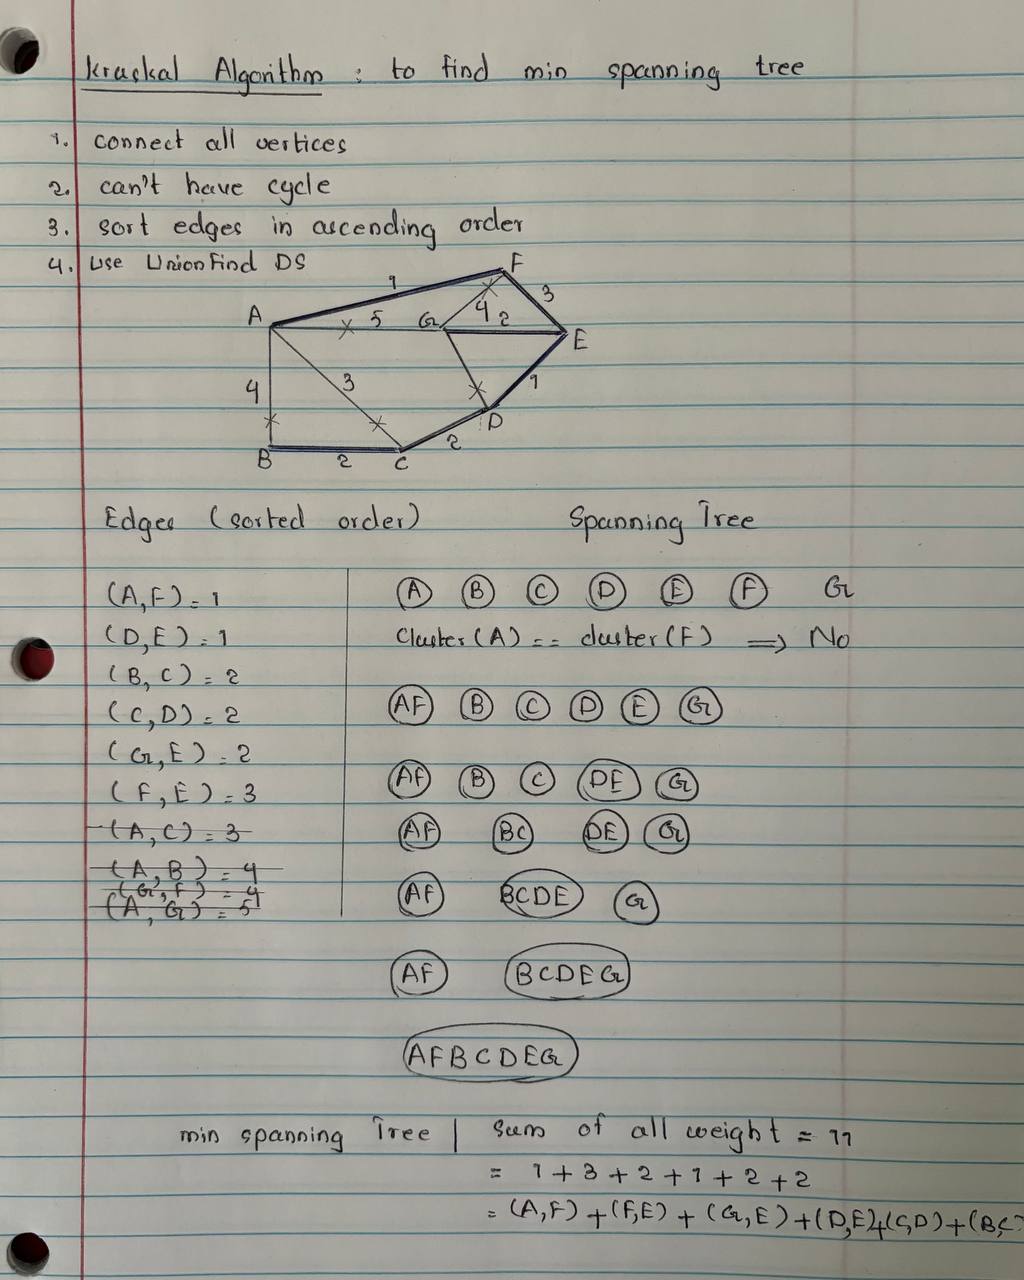 Kruskal Algorithm : to find min spanning tree
1. connect all vertices
2. can't have cycle
3. sort edges in ascending order
4. Use Union Find DS
F
1
3
A
5
G
4
2
E
4
3
1
D
2
B
2
C
Edges (sorted order)
Spanning Tree
(A,F) = 1
(D,E) = 1
(B,C) = 2
(C,D) = 2
(G,E) = 2
(F,E) = 3
(A,C) = 3
(A,B) = 4
(G,F) = 4
(A,G) = 5
A B C D E F G
Cluster(A) == cluster(F) => No
AF B C D E G
AF B C DE G
AF BC DE G
AF BCDE G
AF BCDEG
AFBCDEG
min spanning Tree | Sum of all weight = 11
= 1+3+2+1+2+2
= (A,F)+(F,E)+(G,E)+(D,E)+(C,D)+(B,C)